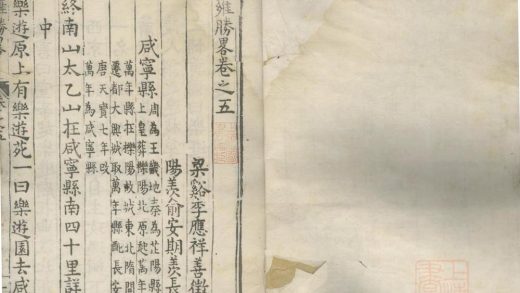 雍勝畧卷之五
梁谿李應祥善徵
陽羨俞安期羨長
咸寧縣
周為王畿地秦為芷陽縣
上皇葬櫟陽北原起萬年
萬年縣在櫟陽故城東北隋開
遷都大興城取萬年縣配長安
唐天寶七年改
萬年為咸寧縣
終南山太乙山在咸寧縣南四十里詳
中
樂遊原上有樂遊苑一曰樂遊園去咸